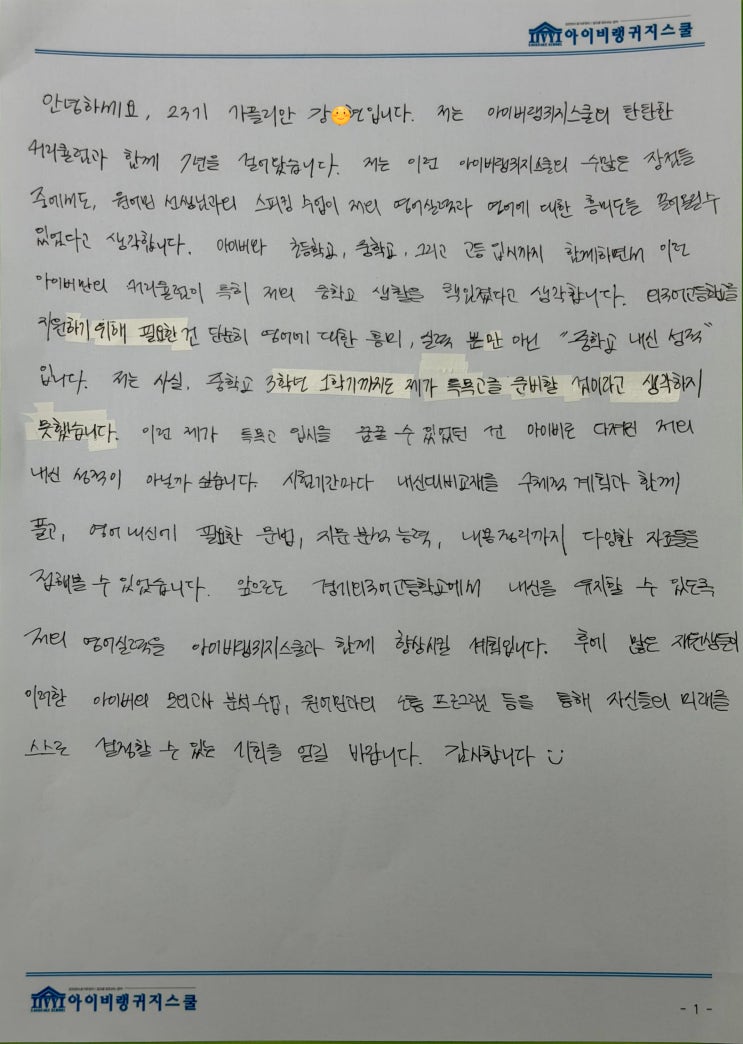 아이비랭귀지스쿨
안녕하세요, 23기 가플리안 강 연입니다. 저는 아이비랭귀지스쿨의 탄탄한
커리큘럼과 함께 7년을 걸어왔습니다. 저는 이런 아이비랭귀지스쿨의 수많은 장점들
중에서도, 원어민 선생님과의 스피킹 수업이 저의 영어실력과 영어에 대한 흥미도를 끌어올릴 수
있었다고 생각합니다. 아이비와 초등학교, 중학교, 그리고 고등 입시까지 함께하면서 이런
아이비만의 커리큘럼이 특히 저의 중학교 생활을 책임졌다고 생각합니다. 외국어고등학교를
지원하기 위해 필요한 건 단순히 영어에 대한 흥미, 실력 뿐만 아닌 "중학교 내신 성적"
입니다. 저는 사실, 중학교 3학년 1학기까지도 제가 특목고를 준비할 것이라고 생각하지
못했습니다. 이런 제가 특목고 입시를 꿈꿀 수 있었던 건 아이비로 다져진 저의
내신 성적이 아닐까 싶습니다. 시험기간마다 내신대비교재를 구체적 계획과 함께
풀고, 영어 내신에 필요한 문법, 지문 분석 능력, 내용정리까지 다양한 자료들을
접해볼 수 있었습니다. 앞으로도 경기외국어고등학교에서 내신을 유지할 수 있도록
저의 영어실력을 아이비랭귀지스쿨과 함께 향상시킬 계획입니다. 후에 많은 재원생들이
이러한 아이비의 모의고사 분석 수업, 원어민과의 소통 프로그램 등을 통해 자신들의 미래를
스스로 결정할 수 있는 기회를 얻길 바랍니다. 감사합니다
아이비랭귀지스쿨
- 1 -